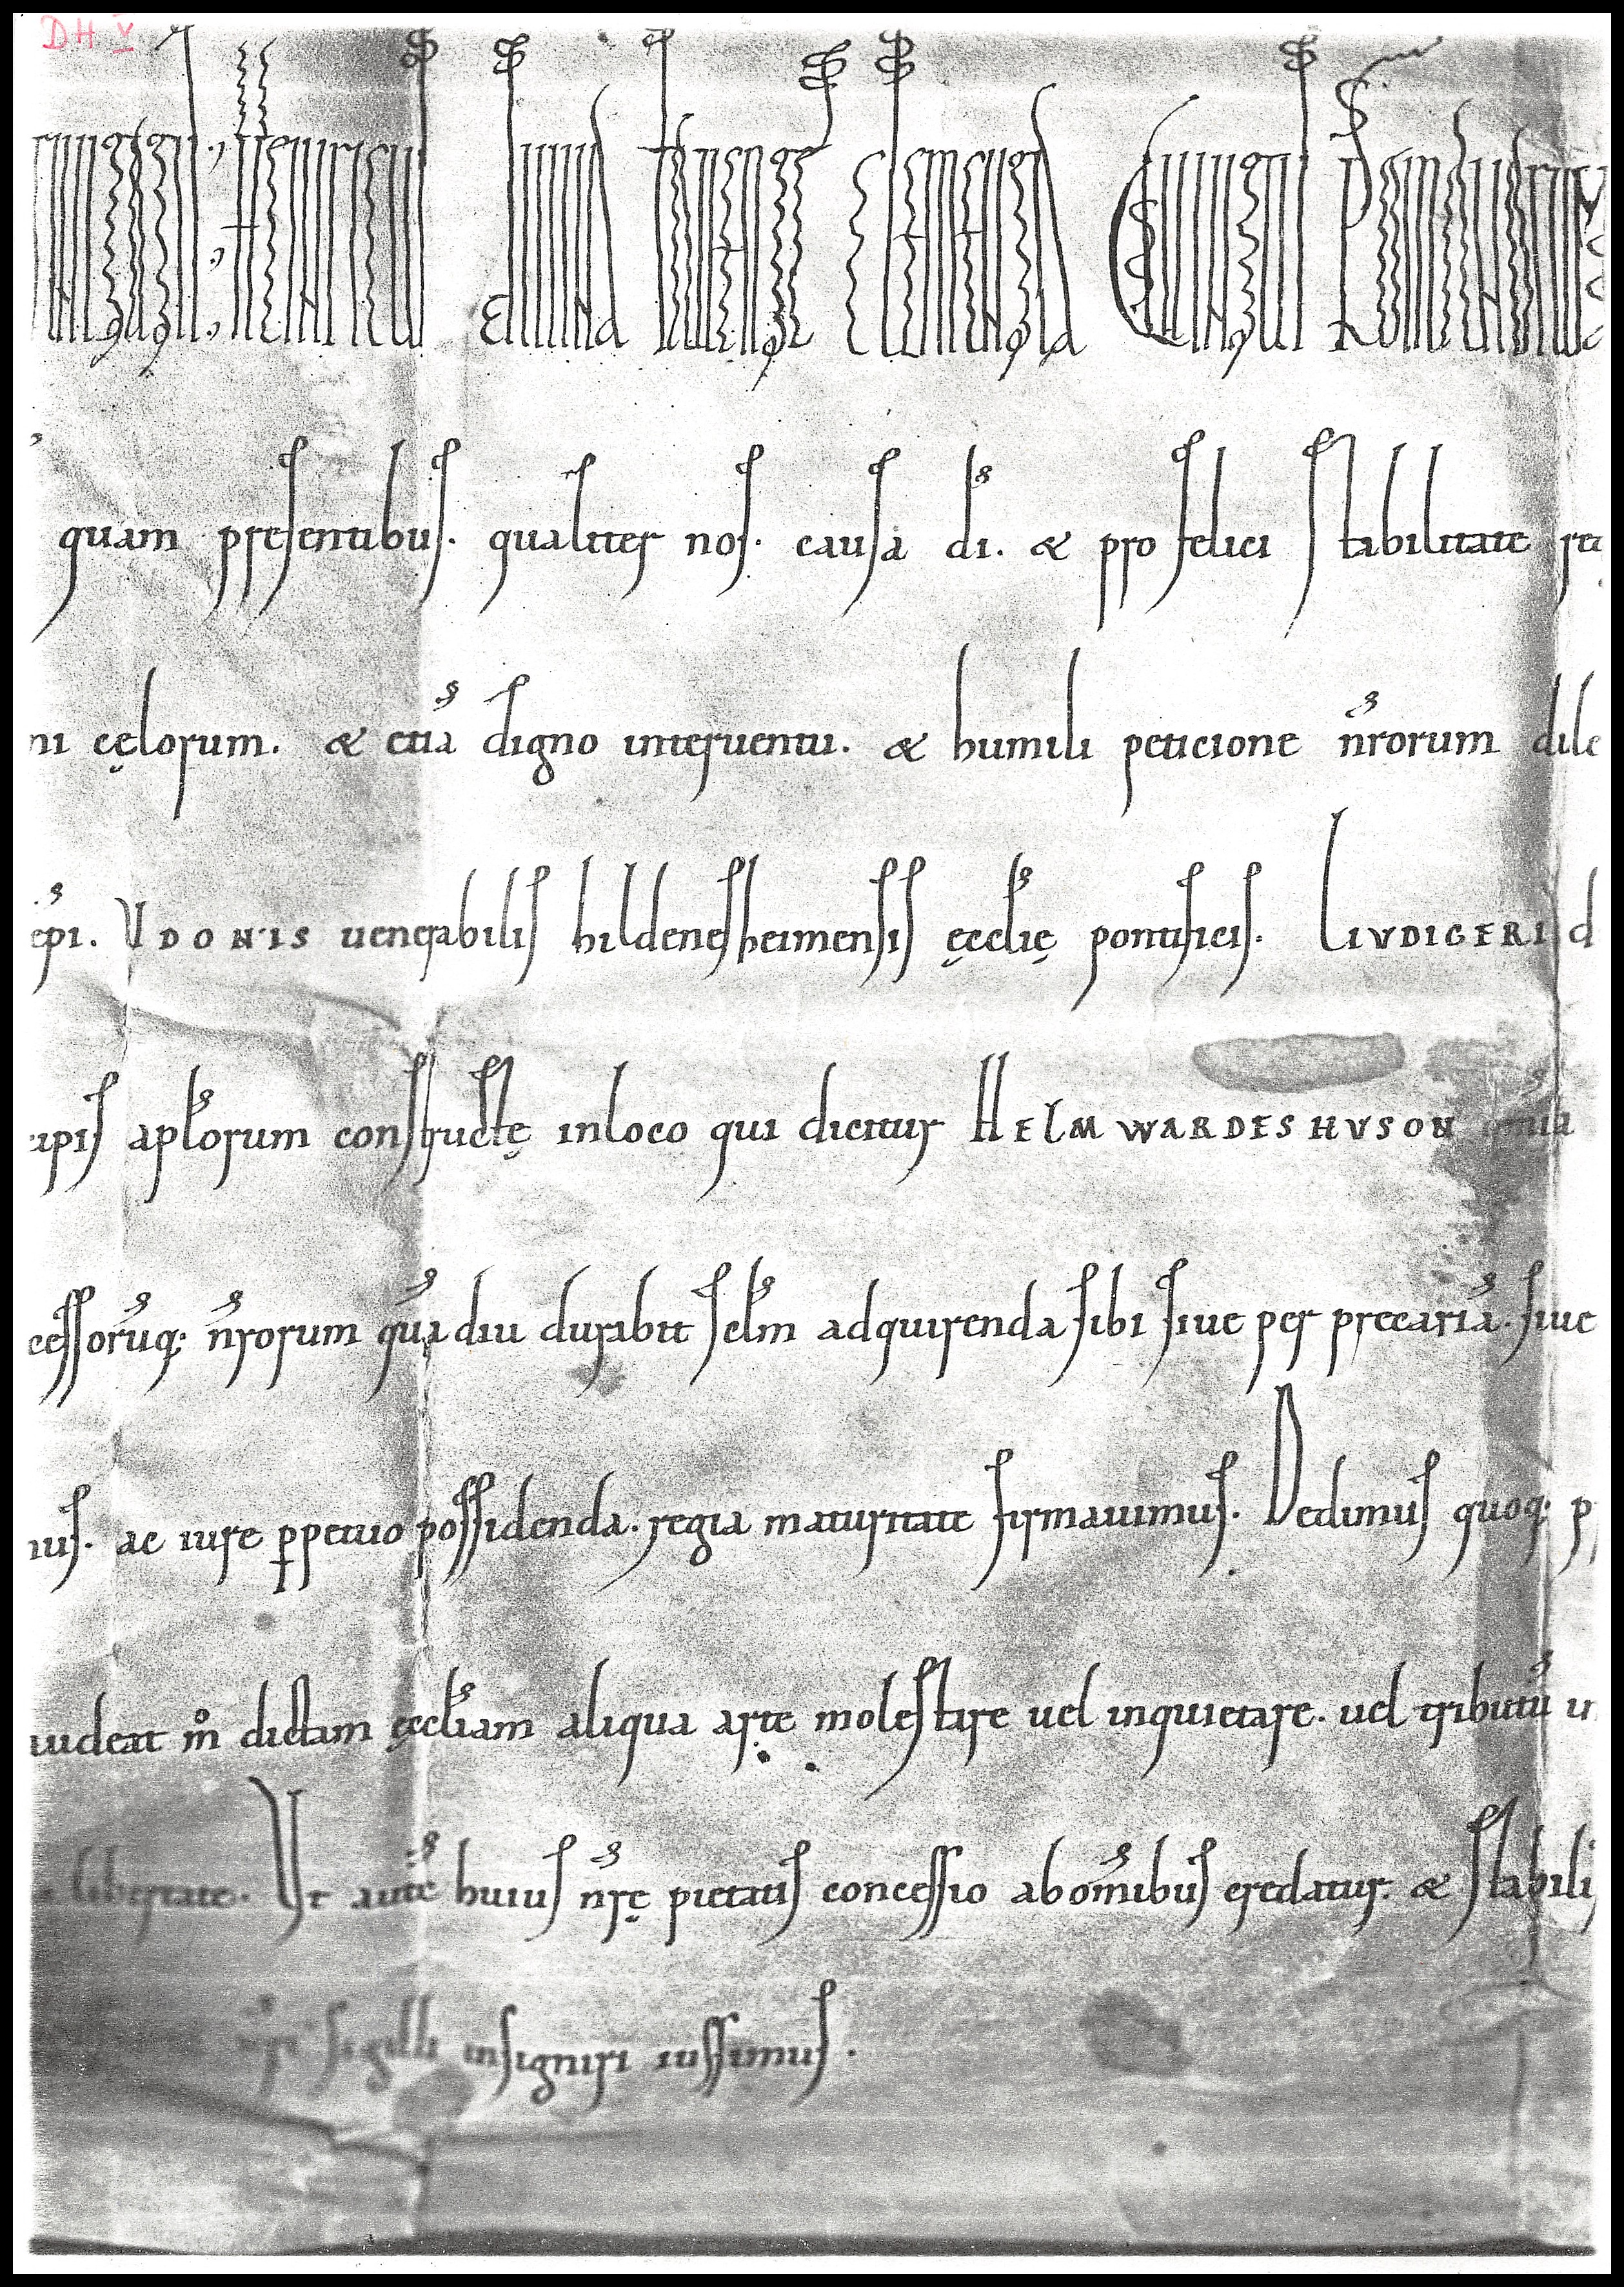 DH V
Heinricus divina favente clementia
quam presentibus. qualiter nos. causa di. & pro felici stabilitate re
ni cęlorum. & etiā digno interuentu. & humili peticione nr̄orum dile
ep̄i. VDONIS uenerabilis hildenesheimensis ęccl̄ię pontificis. LIVDIGERI d
cipis apl̄orum constructę inloco qui dicitur HELMWARDESHVSON om̄ia
cessorūq; nr̄orum quādiu durabit sel̄m adquirenda sibi siue per precariā. siue
ius. ac iure ꝑpetuo possidenda. regia maturitate firmauimus. Dedimus quoq; p
uideat m̊ dictam ęccl̄iam aliqua arte molestare uel inquietare. uel tributū in
libertate. Vt autē huius nr̄ę pietatis concessio abom̄ibus credatur. & stabili
nr̄i sigilli insigniri iussimus.